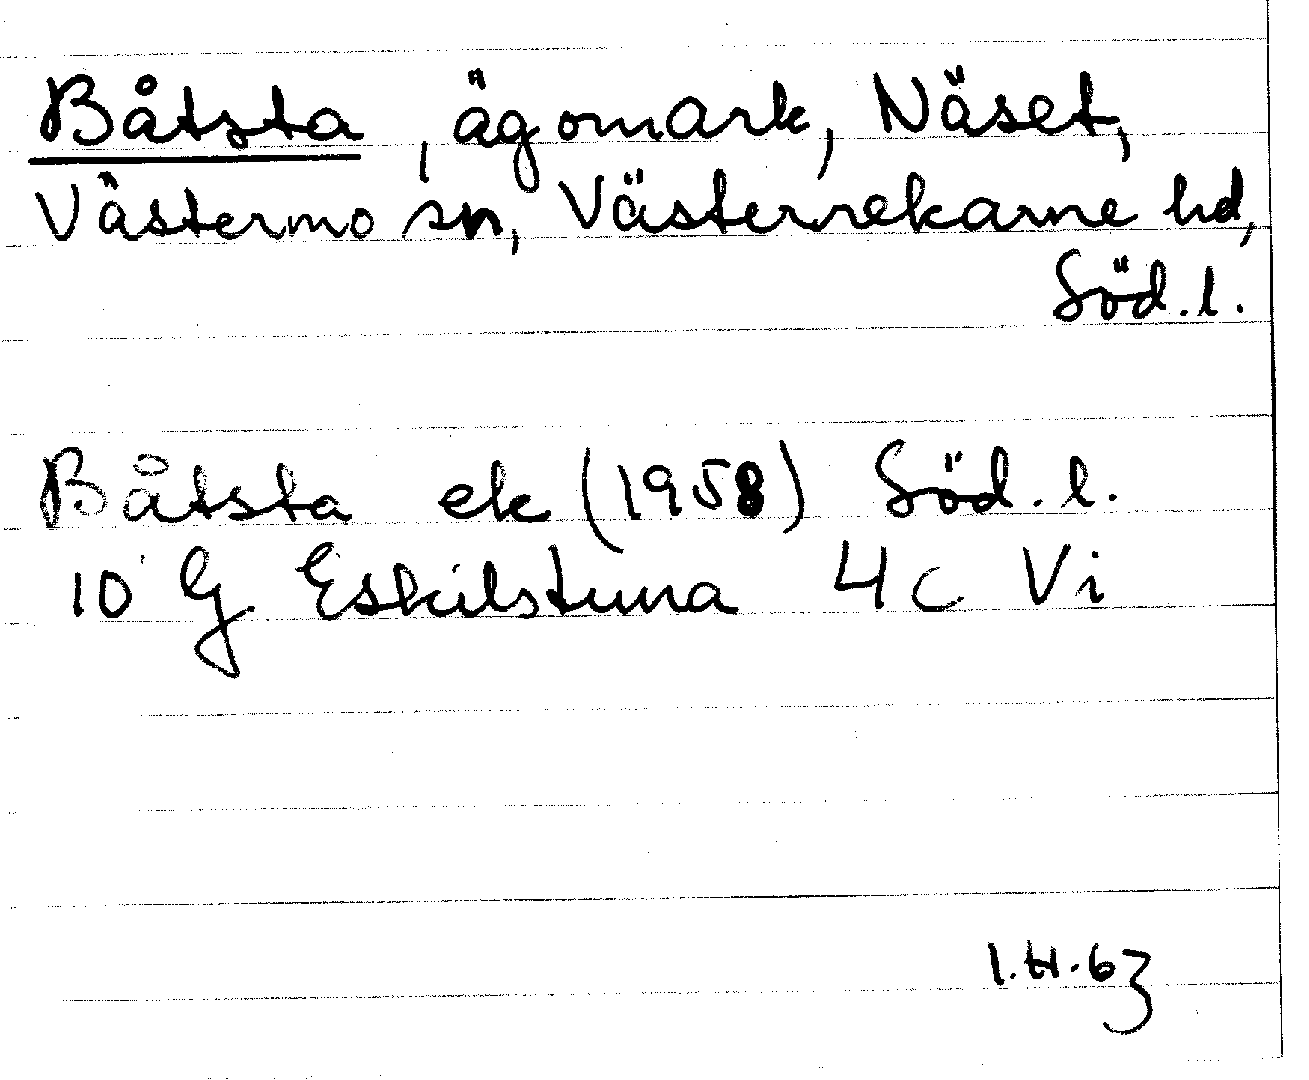 Båtsta, ägomark, Näset,
Västermo sn, Västerrekarne hd,
Söd.l.
Båtsta ek (1958) Söd.l.
10 G Eskilstuna 4c Vi
I.H.63